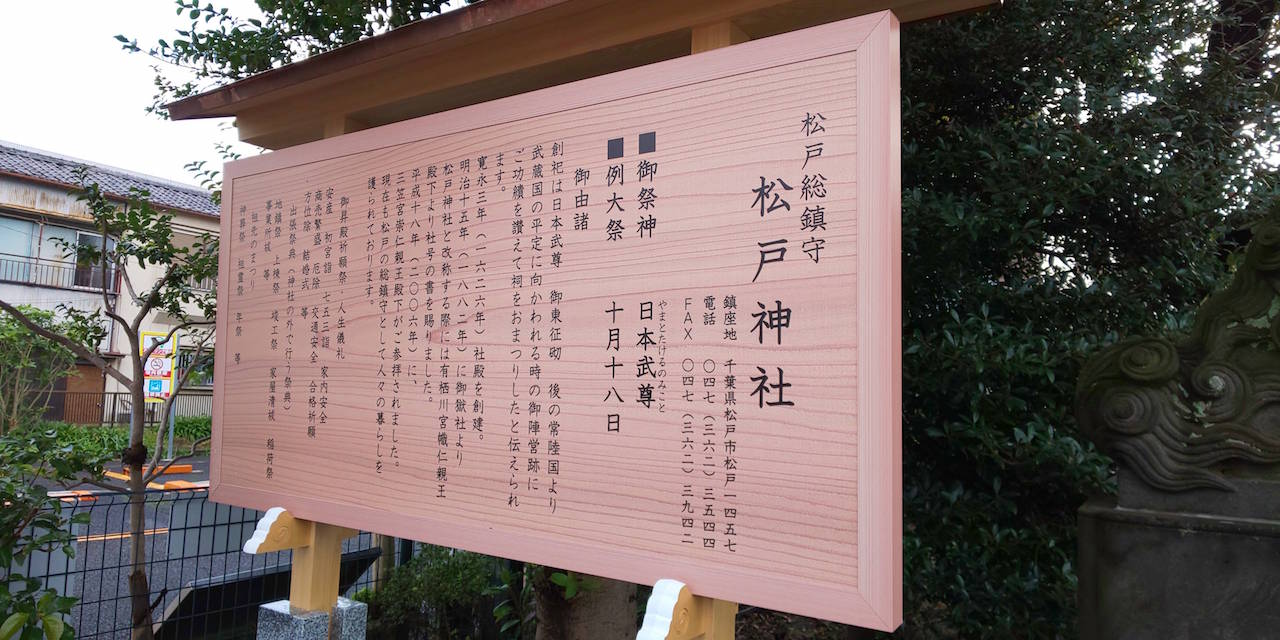 松戸総鎮守
松戸神社
鎮座地 千葉県松戸市松戸一四五七
電話 〇四七(三六二)三五四四
FAX 〇四七(三六二)三九四二
■御祭神 日本武尊
やまとたけるのみこと
■例大祭 十月十八日
御由諸
創祀は日本武尊 御東征砌 後の常陸国より
武蔵国の平定に向かわれる時の御陣営跡に
ご功績を讃えて祠をおまつりしたと伝えられ
ます。
寛永三年(一六二六年)社殿を創建。
明治十五年(一八八二年)に御嶽社より
松戸神社と改称する際には有栖川宮幟仁親王
殿下より社号の書を賜りました。
平成十八年(二〇〇六年)に、
三笠宮崇仁親王殿下がご参拝されました。
現在も松戸の総鎮守として人々の暮らしを
護られております。
御昇殿祈願祭 人生儀礼
安産 初宮詣 七五三詣 家内安全
商売繁盛 厄除 交通安全 合格祈願
方位除 結婚式 等
出張祭典(神社の外で行う祭典)
地鎮祭 上棟祭 竣工祭 家屋清祓 稲荷祭
事業所祓 等
祖先のまつり
神葬祭 祖霊祭 年祭 等